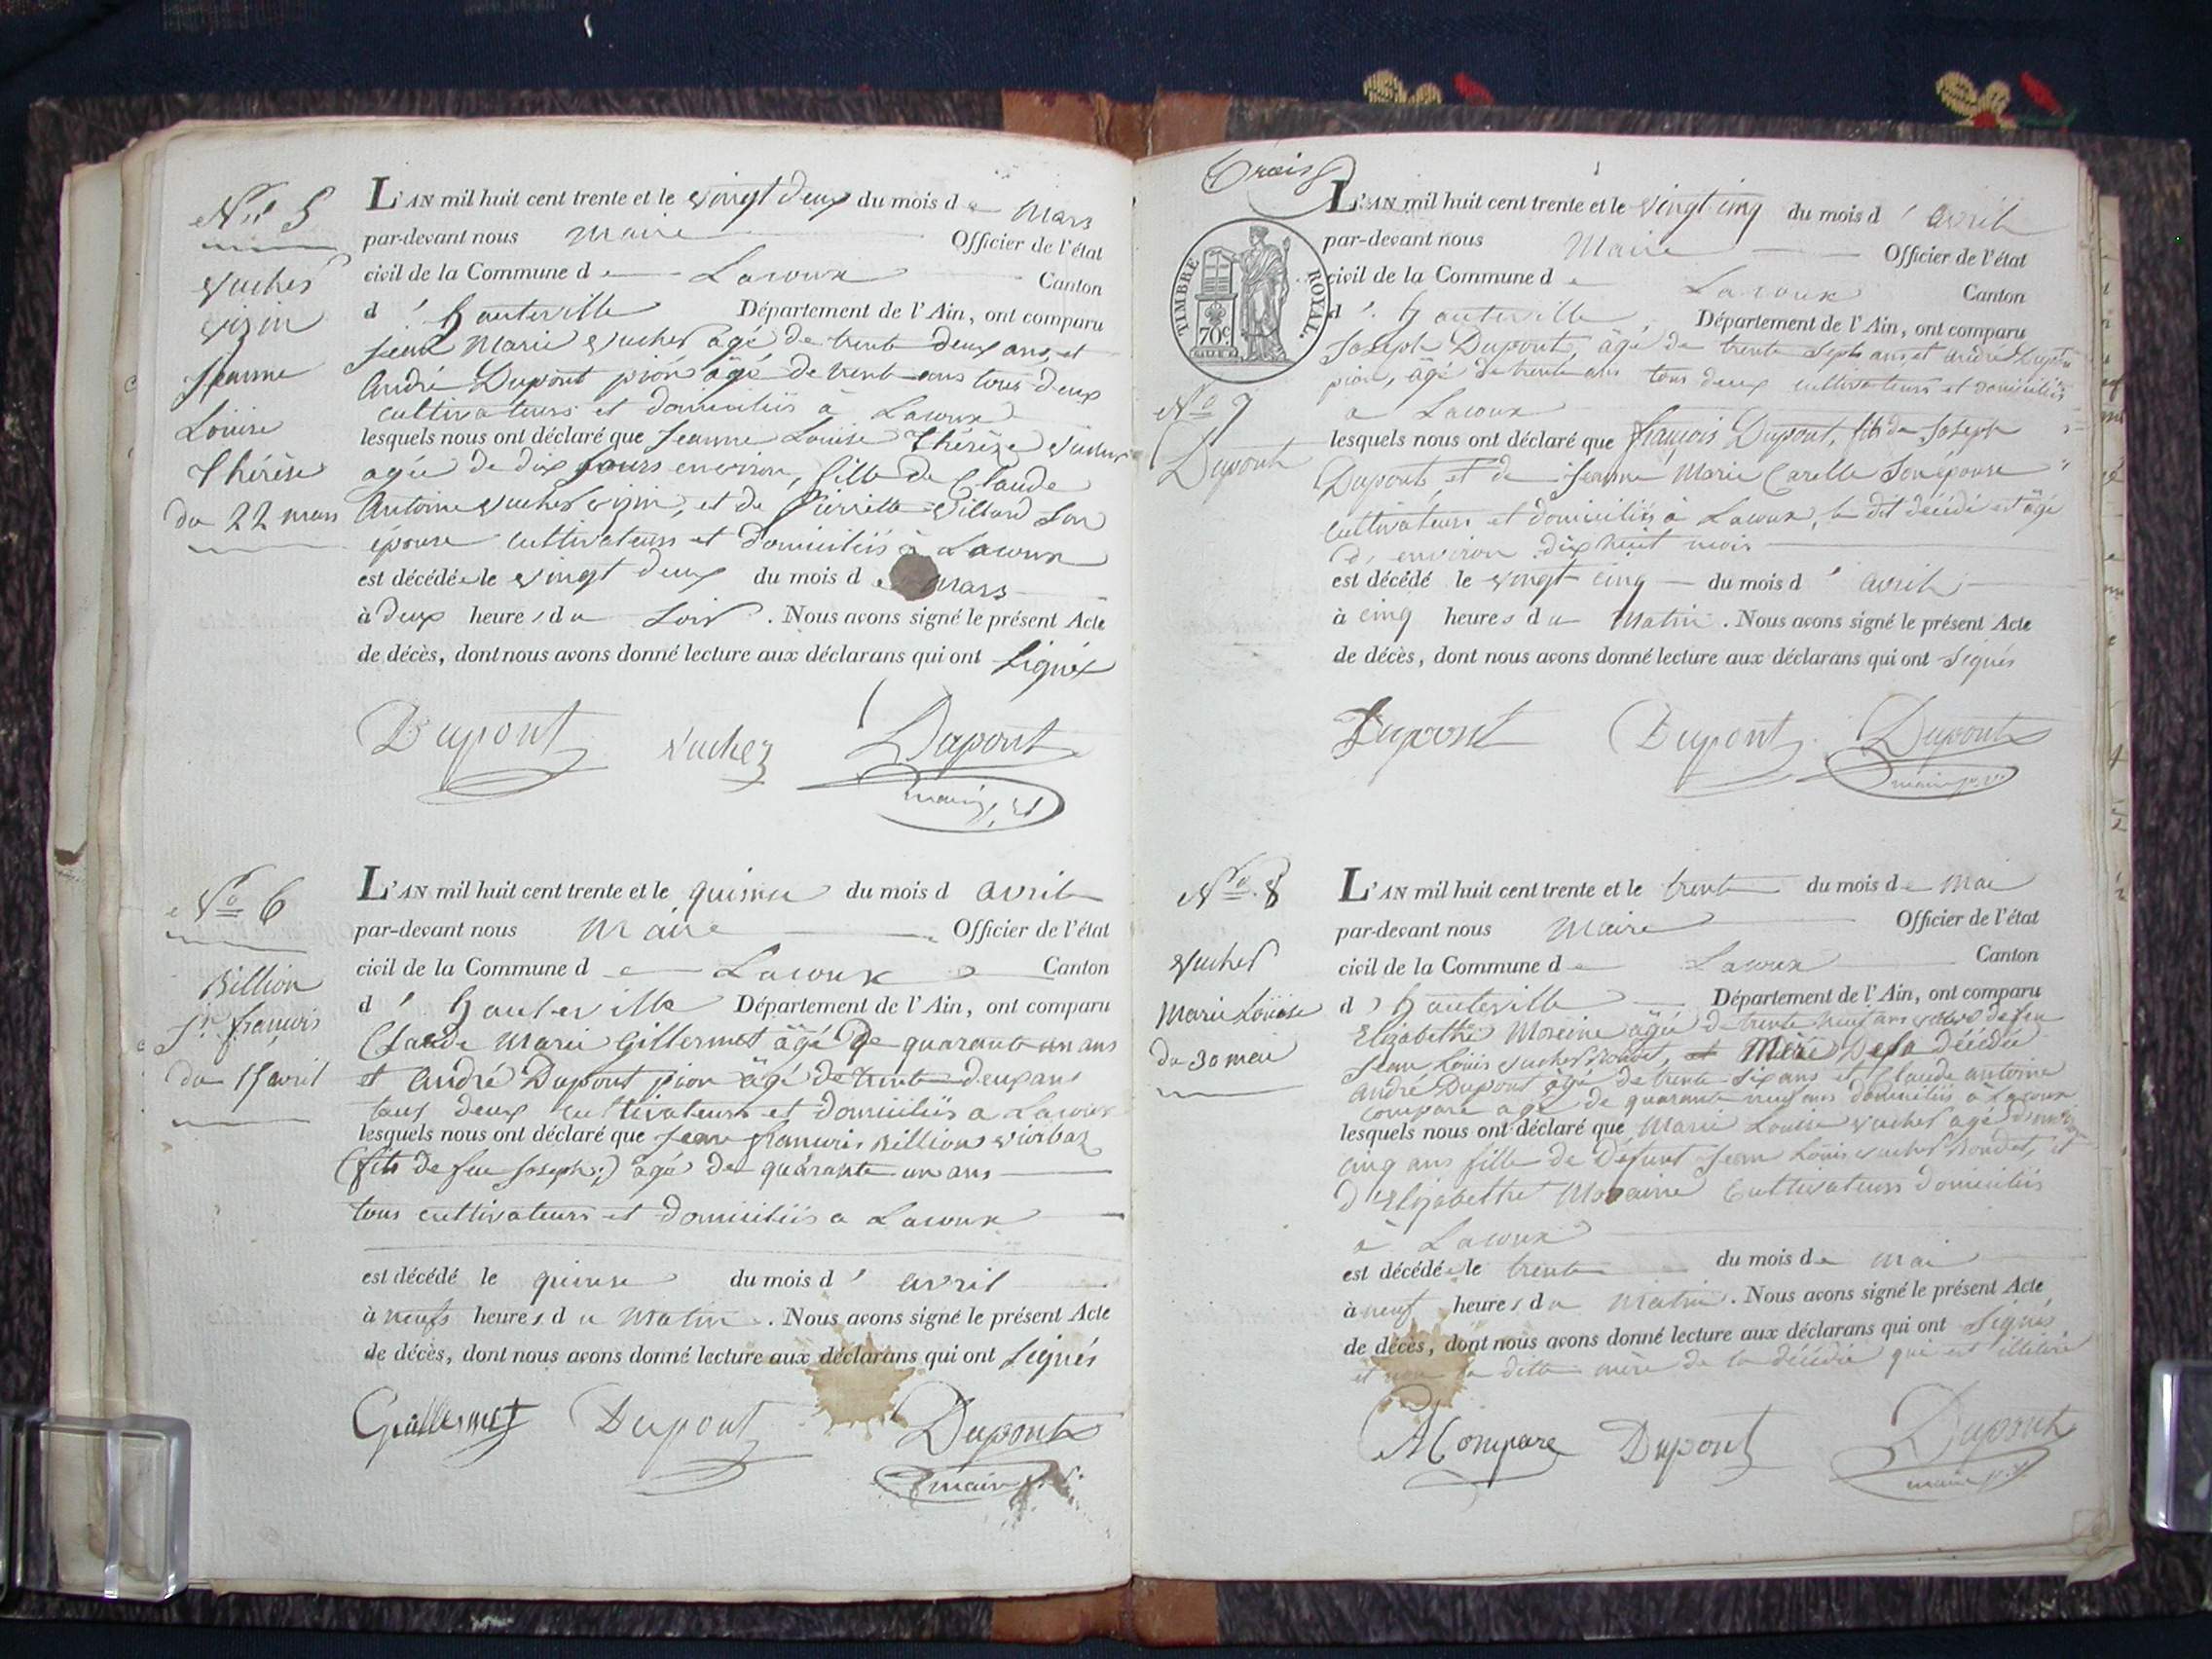 No 5
Vucher
vizin
Jeanne
Louise
Thérèse
du 22 mars
L'AN mil huit cent trente et le vingt deux du mois de Mars
par-devant nous Maire Officier de l'état
civil de la Commune de Lacoux Canton
d' hauteville Département de l'Ain, ont comparu
Jean Marie Vucher agé de trente deux ans, et
André Dupont pion agé de trente ans tous deux
cultivateurs et domiciliés à Lacoux
lesquels nous ont déclaré que Jeanne Louise Thérèze Vucher
agée de dix jours environ, fille de Claude
Antoine Vucher vizin, et de Pierrette Villard Son
épouse cultivateurs et domiciliés à Lacoux
est décédée le vingt deux du mois de Mars
à deux heures du Soir. Nous avons signé le présent Acte
de décès, dont nous avons donné lecture aux déclarans qui ont Signés
Dupont Vucher Dupont
maire
No 6
Billion
Jn françois
du 15 avril
L'AN mil huit cent trente et le quinse du mois d avril
par-devant nous Maire Officier de l'état
civil de la Commune de Lacoux Canton
d' hauteville Département de l'Ain, ont comparu
Claude Marie Gillermet âgé De quarante un ans
et André Dupont pion âgé de trente deux ans
tous deux cultivateurs et domiciliés a Lacoux
lesquels nous ont déclaré que Jean francois Billion
(fils de feu Joseph:) âgé de quarante un ans
tous cultivateurs et domiciliés a Lacoux
est décédé le quinse du mois d' avril
à neufs heures du Matin. Nous avons signé le présent Acte
de décès, dont nous avons donné lecture aux déclarans qui ont Signés
Guillermet Dupont Dupont
maire
Trois
TIMBRE ROYAL.
70c.
No 7
Dupont
L'AN mil huit cent trente et le vingt cinq du mois d' avril
par-devant nous Maire Officier de l'état
civil de la Commune de Lacoux Canton
d' hauteville Département de l'Ain, ont comparu
Joseph Dupont, âgé de trente Sept ans et andré Dupont
pion, âgé de trente ans tous deux cultivateurs et domiciliés
a Lacoux
lesquels nous ont déclaré que françois Dupont, fils de Joseph
Dupont, et de Jeanne Marie Carelle Son épouse
cultivateurs et domiciliés à Lacoux, le dit décédé est âgé
d' environ dix huit mois
est décédé le vingt cinq du mois d' avril
à cinq heures du Matin. Nous avons signé le présent Acte
de décès, dont nous avons donné lecture aux déclarans qui ont Signés
Dupont Dupont Dupont
maire
No 8
Vucher
Marie Louise
du 30 mai
L'AN mil huit cent trente et le trente du mois de Mai
par-devant nous Maire Officier de l'état
civil de la Commune de Lacoux Canton
d' hauteville Département de l'Ain, ont comparu
Elizabethe Moreine âgée de trente neuf ans veuve de feu
Jean Louis Vucher Rondet, et Mere De la Décédée
André Dupont âgé de trente Six ans et Claude antoine
Compare agé de quarante neuf ans domiciliés à Lacoux
lesquels nous ont déclaré que Marie Louise Vucher agé
cinq ans fille de Défunt Jean Louis Vucher Rondet, et
d'Elizabethe Moraine Cultivateurs domiciliés
à Lacoux
est décédée le trente du mois de Mai
à neuf heures du Matin. Nous avons signé le présent Acte
de décès, dont nous avons donné lecture aux déclarans qui ont Signés
et non la ditte mère de la décédée qui est illitéré
A Compare Dupont Dupont
maire